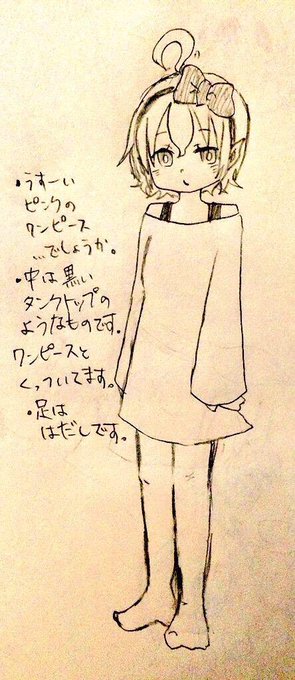 ・うすーい
ピンクの
ワンピース
…でしょうか。
・中は黒い
タンクトップの
ようなものです。
ワンピースと
くっついてます。
・足は
はだしです。